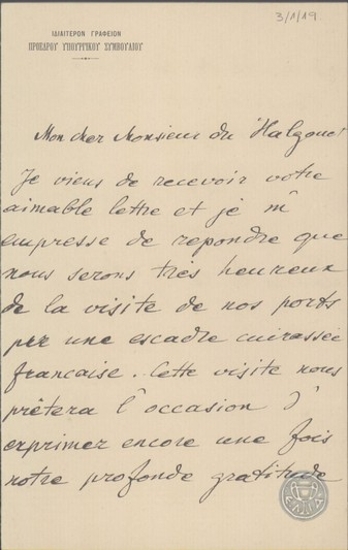 3/1/19.
ΙΔΙΑΙΤΕΡΟΝ ΓΡΑΦΕΙΟΝ
ΠΡΟΕΔΡΟΥ ΥΠΟΥΡΓΙΚΟΥ ΣΥΜΒΟΥΛΙΟΥ
Mon cher Monsieur du Halgouet
Je viens de recevoir votre
aimable lettre et je m'
empresse de repondre que
nous serons très heureux
de la visite de nos ports
par une escadre cuirassée
française. Cette visite nous
prêtera l'occasion d'
exprimer encore une fois
notre profonde gratitude